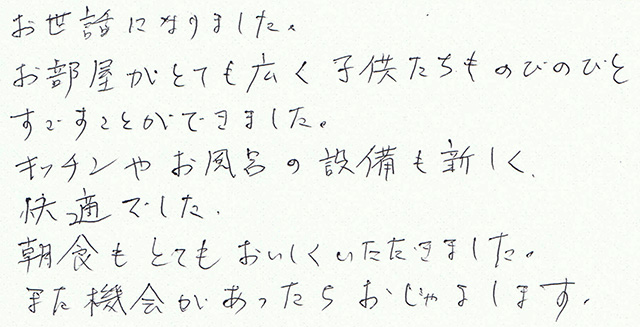 お世話になりました。
お部屋がとても広く子供たちものびのびと
すごすことができました。
キッチンやお風呂の設備も新しく、
快適でした。
朝食もとてもおいしくいただきました。
また機会があったらおじゃまします。